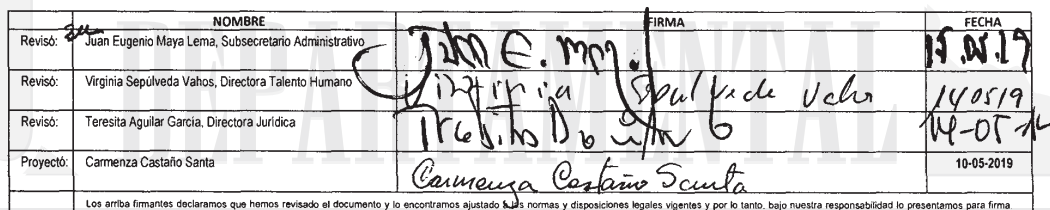 NOMBRE FIRMA FECHA
Revisó: Juan Eugenio Maya Lema, Subsecretario Administrativo Juan E. M 15.05.19
Revisó: Virginia Sepúlveda Vahos, Directora Talento Humano Virginia Sepulveda Vahos 140519
Revisó: Teresita Aguilar García, Directora Jurídica Teresita
Proyectó: Carmenza Castaño Santa Carmenza Castaño Santa 10-05-2019
Los arriba firmantes declaramos que hemos revisado el documento y lo encontramos ajustado a las normas y disposiciones legales vigentes y por lo tanto, bajo nuestra responsabilidad lo presentamos para firma
DEPARTAMENTAL